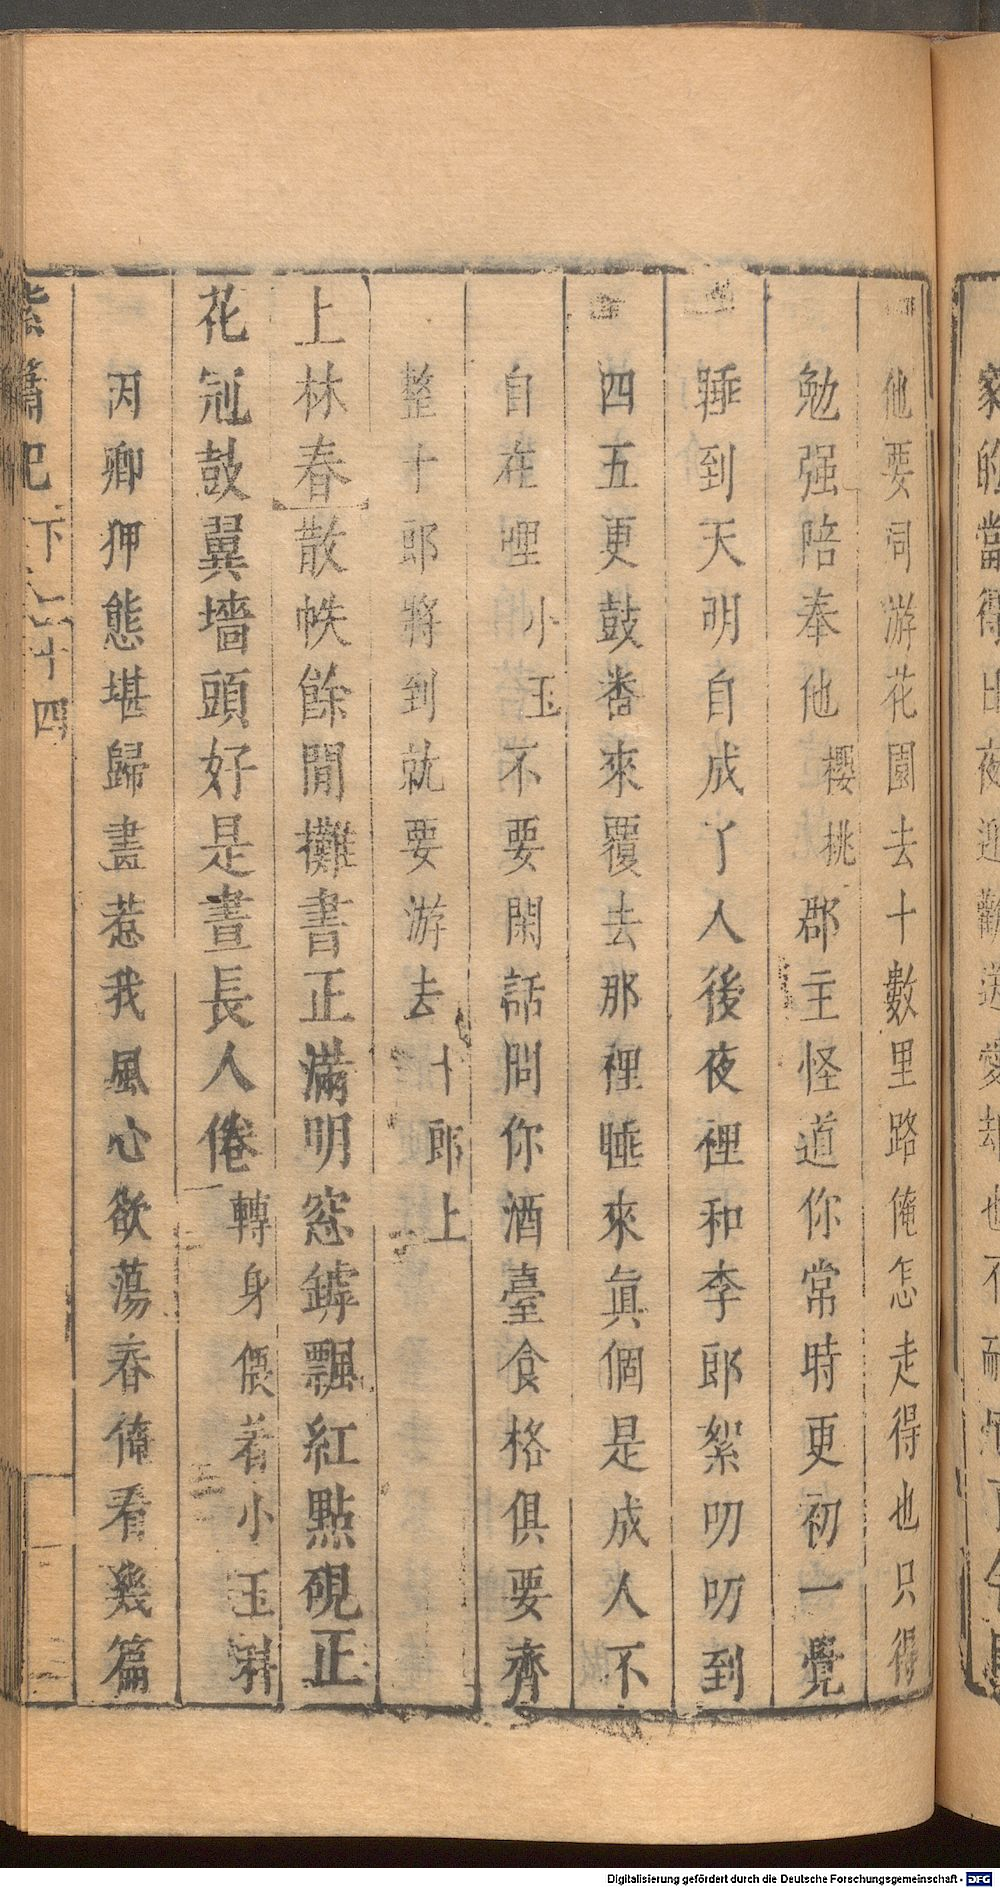 家的當得日夜迎歡送愛却也不耐
他要同游花園去十數里路俺怎走得也只得
勉强陪奉他櫻桃郡主怪道你常時更初一覺
睡到天明自成了人後夜裡和李郎絮叨叨到
四五更鼓番來覆去那裡睡來眞個是成人不
自在哩小玉不要閑話問你酒臺食格俱要齊
整十郎將到就要游去十郎上
上林春散帙餘閒攤書正滿明窓罅飄紅點硯正
花冠鼓翼墻頭好是晝長人倦轉身偎着小玉科
丙卿狎態堪歸畫惹我風心欲蕩春倦看幾篇
紫簫記下二十四
Digitalisierung gefördert durch die Deutsche Forschungsgemeinschaft - DFG